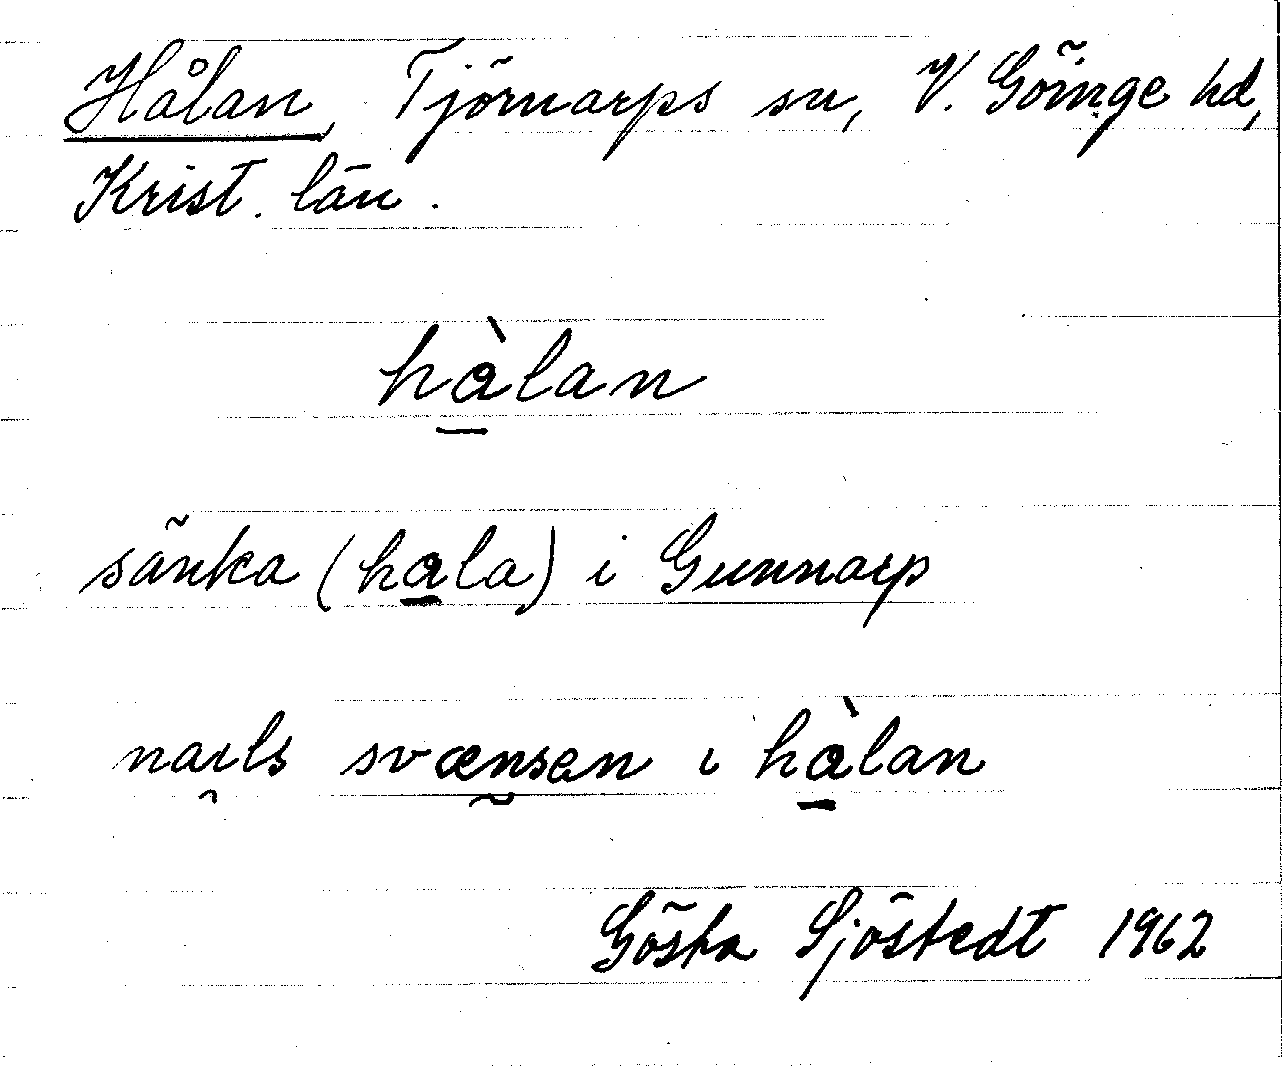 Hålan, Tjörnarps sn, V. Göinge hd,
Krist. län.
hàlan
sänka (hala) i Gunnarp
naıls svænsen i hàlan
Gösta Sjöstedt 1962